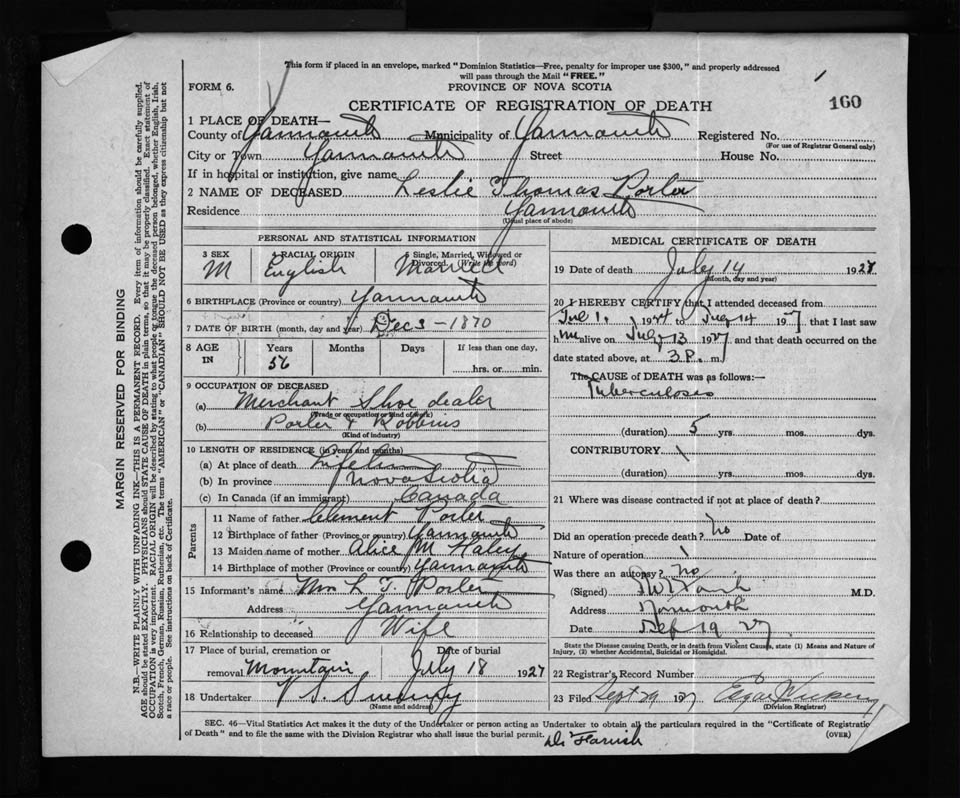 This form if placed in an envelope, marked "Dominion Statistics—Free, penalty for improper use $300," and properly addressed
will pass through the Mail "FREE."
FORM 6.
PROVINCE OF NOVA SCOTIA
160
CERTIFICATE OF REGISTRATION OF DEATH
1 PLACE OF DEATH—
County of Yarmouth Municipality of Yarmouth Registered No.
(For use of Registrar General only)
City or Town Yarmouth Street House No.
If in hospital or institution, give name
2 NAME OF DECEASED Leslie Thomas Porter
Residence Yarmouth
(Usual place of abode)
PERSONAL AND STATISTICAL INFORMATION
3 SEX M
4 RACIAL ORIGIN English
5 Single, Married, Widowed or Divorced. (Write the word) Married
6 BIRTHPLACE (Province or country) Yarmouth
7 DATE OF BIRTH (month, day and year) Dec 3 - 1870
8 AGE IN Years 56 Months Days If less than one day, hrs. or min.
9 OCCUPATION OF DECEASED
(a) Merchant Shoe dealer
(Trade occupation or kind of work)
(b) Porter & Robbins
(Kind of industry)
10 LENGTH OF RESIDENCE (in years and months)
(a) At place of death Lifetime
(b) In province Nova Scotia
(c) In Canada (if an immigrant) Canada
Parents
11 Name of father Clement Porter
12 Birthplace of father (Province or country) Yarmouth
13 Maiden name of mother Alice M Haley
14 Birthplace of mother (Province or country) Yarmouth
15 Informant's name Mrs L. T. Porter
Address Yarmouth
16 Relationship to deceased Wife
17 Place of burial, cremation or removal Mountain Date of burial July 18 1927
18 Undertaker V S Sweeny
(Name and address)
MEDICAL CERTIFICATE OF DEATH
19 Date of death July 14 1927
(Month, day and year)
20 I HEREBY CERTIFY that I attended deceased from
Jul 1. to July 14 1927 that I last saw
him alive on July 13 1927 and that death occurred on the
date stated above, at 3 P. m.
The CAUSE OF DEATH was as follows:—
Tuberculosis
(duration) 5 yrs. mos. dys.
CONTRIBUTORY
(duration) yrs. mos. dys.
21 Where was disease contracted if not at place of death?
Did an operation precede death? no Date of
Nature of operation
Was there an autopsy? no
(Signed) M.D.
Address Yarmouth
Date Sep 19 27
State the Disease causing Death, or in death from Violent Causes, state (1) Means and Nature of
Injury, (2) whether Accidental, Suicidal or Homicidal.
22 Registrar's Record Number
23 Filed Sept 29 1927
(Division Registrar)
SEC. 46—Vital Statistics Act makes it the duty of the Undertaker or person acting as Undertaker to obtain all the particulars required in the "Certificate of Registration
of Death" and to file the same with the Division Registrar who shall issue the burial permit.
(OVER)
MARGIN RESERVED FOR BINDING
N.B.—WRITE PLAINLY WITH UNFADING INK—THIS IS A PERMANENT RECORD. Every item of information should be carefully supplied.
AGE should be stated EXACTLY. PHYSICIANS should STATE CAUSE OF DEATH in plain terms, so that it may be properly classified. Exact statement of
OCCUPATION is very important. RACIAL ORIGIN will be described by stating to what people or tongue the deceased person belonged, whether English, Irish,
Scotch, French, German, Russian, Ruthenian, etc. The terms "AMERICAN" or "CANADIAN" SHOULD NOT BE USED as they express citizenship but not
a race or people. See instructions on back of Certificate.